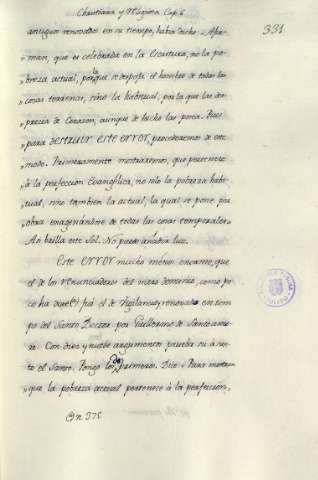 Chauttiana y Maquera Cap. 6
331
antiguos renovados en su tiempo, habia dicho: Afir-
man, que es celebrada en la Escritura, no la po-
breza actual, por la que se despoja el hombre de todas las
cosas terrenas, sino la habitual, por la que las des-
precia de Corazon, aunque de hecho las posea. Pues
para destruir este error, procederemos de este
modo. Primeramente mostraremos, que pertenece
à la perfección Evangélica, no solo la pobreza habi-
tual, sino tambien la actual, la qual se pone por
obra enagenándose de todas las cosas temporales
Asi brilla este Sol. No puedo añadir luz.
Este error mucho menos enorme, que
el de los renunciadores del mero dominio, como po-
co ha dixe, fué el de Vigilancio, renovado en tiem-
po del Santo Doctor por Guillermo de Santo amo-
re. Con diez y nueve argumentos prueba su asun-
to el Santo. Pongo los dos primeros. Dice: Para mostrar
que la pobreza actual pertenece à la perfeccion,